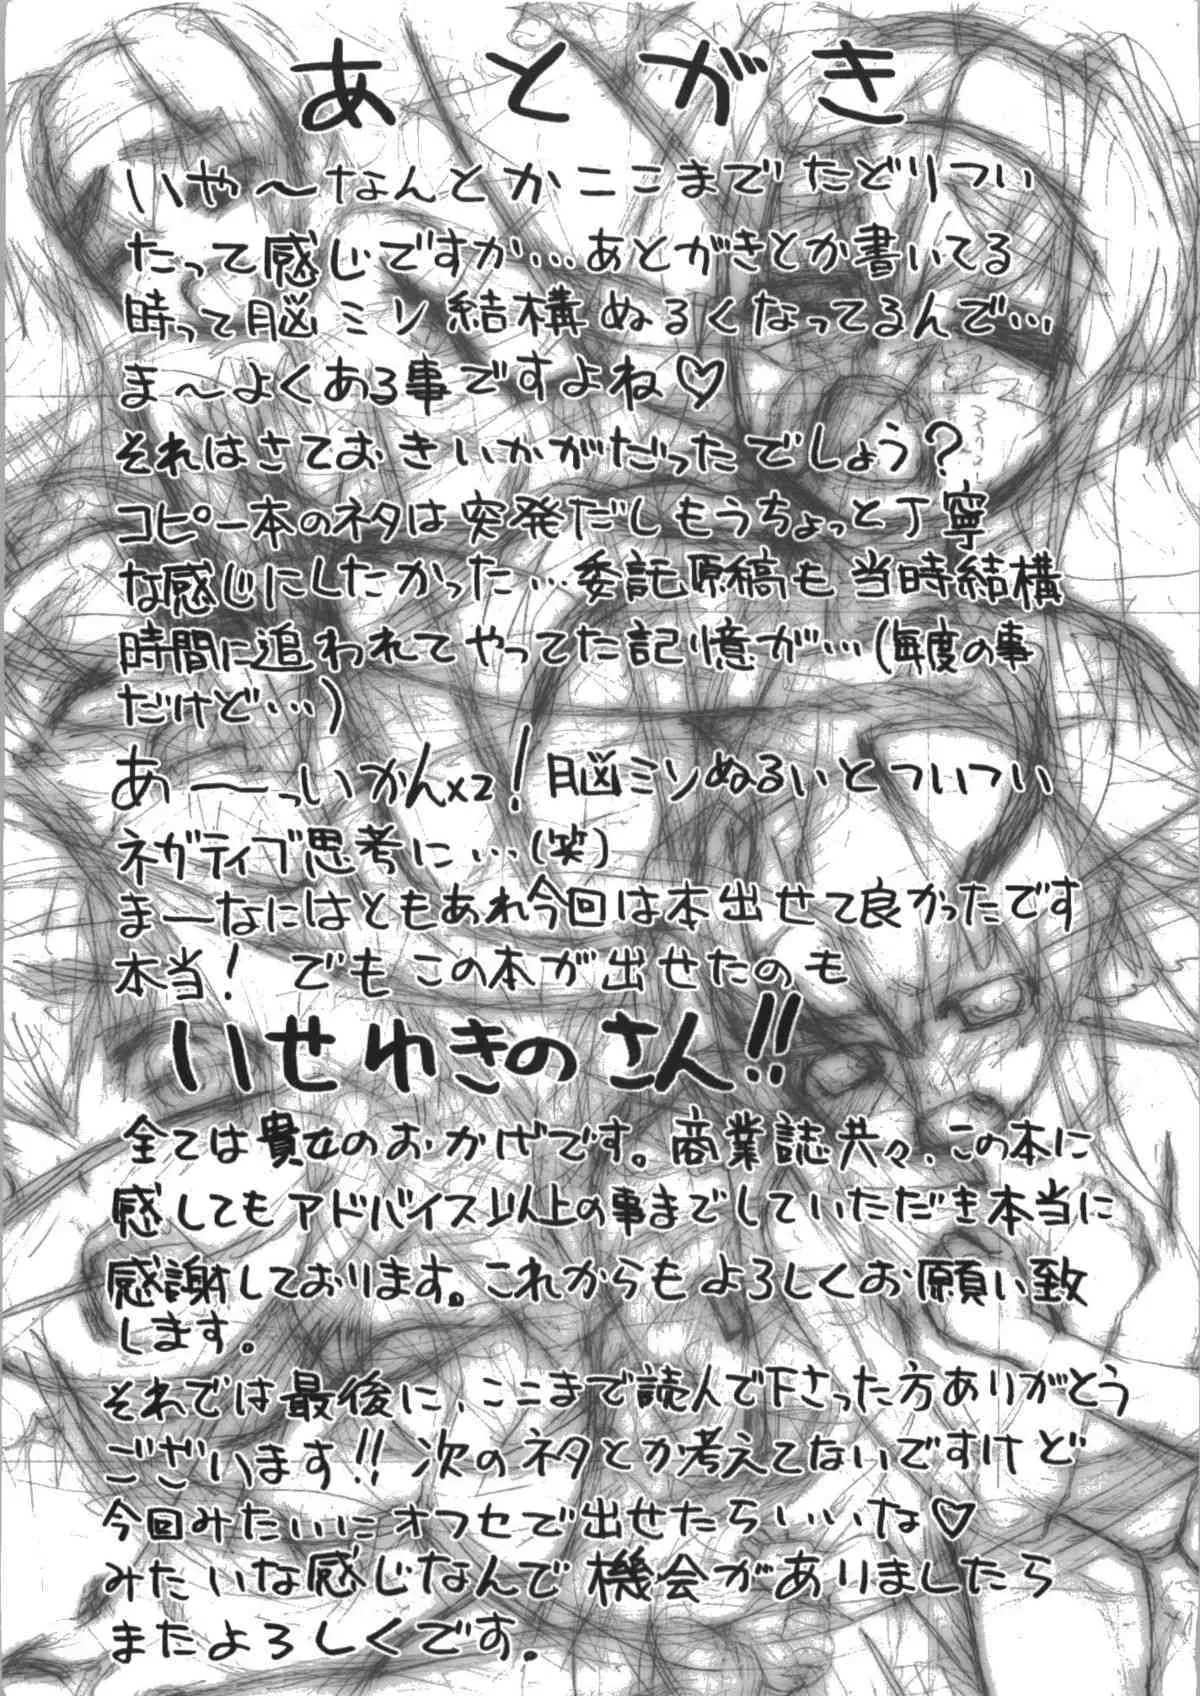 あとがき
いや〜なんとかここまでたどりつい
たって感じですか…あとがきとか書いてる
時って脳ミソ結構ぬるくなってるんで…
ま〜よくある事ですよね♡
それはさておきいかがだったでしょう?
コピー本のネタは突発だしもうちょっと丁寧
な感じにしたかった…委託原稿も当時結構
時間に追われてやってた記憶が…(毎度の事
だけど…)
あ〜っいかんx2!脳ミソぬるいとついつい
ネガティブ思考に…(笑)
まーなにはともあれ今回は本出せて良かったです
本当! でもこの本が出せたのも
いせわきのさん!!
全ては貴女のおかげです。商業誌共々、この本に
感してもアドバイス以上の事までしていただき本当に
感謝しております。これからもよろしくお願い致
します。
それでは最後に、ここまで読んで下さった方ありがとう
ございます!!次のネタとか考えてないですけど
今回みたいにオフセで出せたらいいな♡
みたいな感じなんで機会がありましたら
またよろしくです。